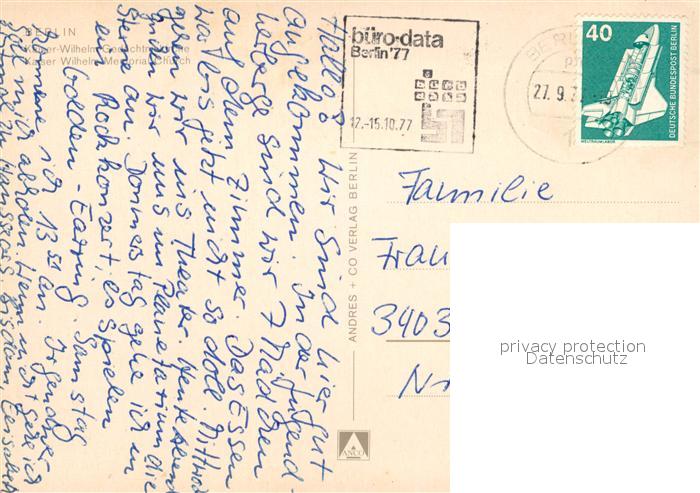 BERLIN
Kaiser-Wilhelm-Gedächtniskirche
Kaiser Wilhelm Memorial Church
Hallo! Wir sind hier gut
angekommen. In der Jugend-
herberge sind wir 7 Mädchen
auf dem Zimmer. Das Essen
war bis jetzt nicht so doll. Mittwoch
gehen wir ins Theater. Heute Abend
gucken wir uns im Planetarium die
Sterne an. Donnerstag gehe ich in
ein Rockkonzert, es spielen
Golden-Earring. Samstag
komme ich 13 51 an. Irgendwer
soll mich abholen. Wenn nicht gehe ich
zu Hanssons. Bis dann, Elisabeth
ANDRES + CO VERLAG BERLIN
ANCO
büro-data
Berlin '77
12.-15.10.77
BERLIN
27.9.7
40
DEUTSCHE BUNDESPOST BERLIN
WELTRAUMLABOR
Familie
Fran
3403
privacy protection
Datenschutz